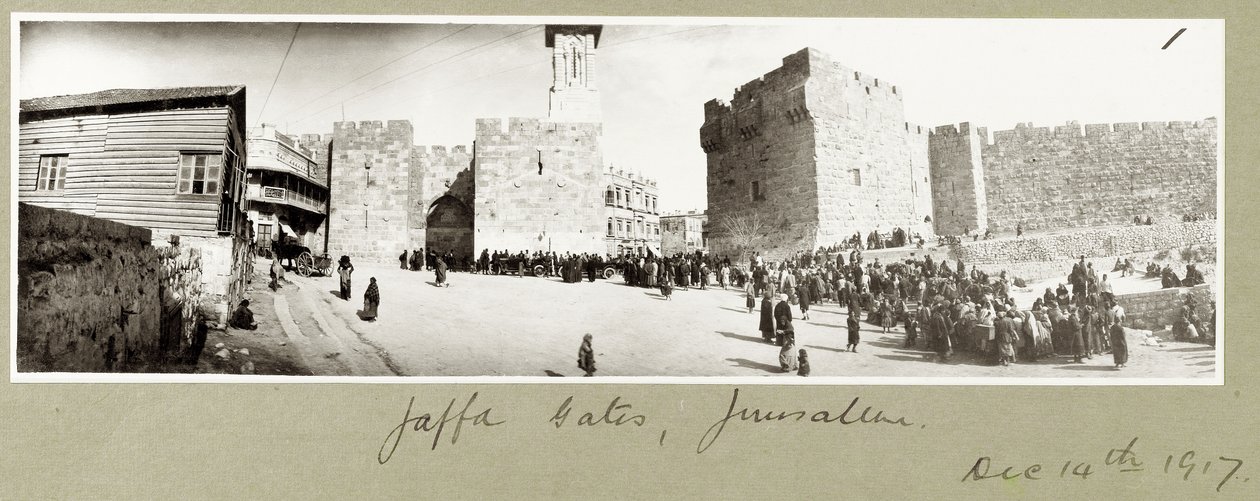 Jaffa Gates, Jerusalem.
Dec 14th 1917.